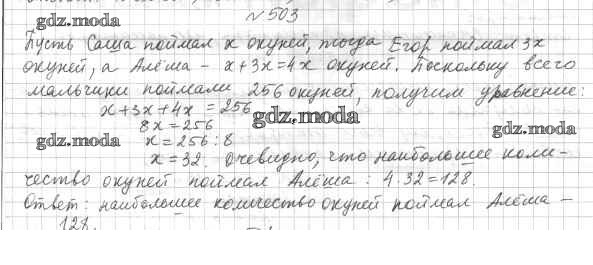 № 503
gdz.moda
Пусть Саша поймал x окуней, тогда Егор поймал 3x
окуней, а Алёша – x+3x=4x окуней. Поскольку всего
мальчики поймали 256 окуней, получим уравнение:
x+3x+4x = 256
8x = 256 gdz.moda
gdz.moda x = 256 : 8 gdz.moda
x = 32. Очевидно, что наибольшее коли-
чество окуней поймал Алёша : 4·32=128.
Ответ: наибольшее количество окуней поймал Алёша –
128.